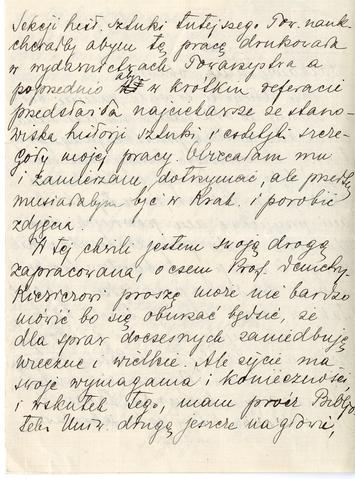 Sekcji hist. sztuki tutejszego Tow. nauk
chciałby abym tę pracę drukowała
w wydawnictwach Towarzystwa a
poprzednio abym w krótkim referacie
przedstawiła najciekawsze ze stano-
wiska historji sztuki i estetyki szcze-
góły mojej pracy. Obiecałam mu
i zamierzam dotrzymać, ale przedtem
musiałabym być w Krak. i porobić
zdjęcia.
W tej chwili jestem swoją drogą
zapracowana, o czem Prof. Demetry-
kiewiczowi proszę może nie bardzo
mówić bo się oburzać będzie, że
dla spraw doczesnych zaniedbuję
wieczne i wielkie. Ale życie ma
swoje wymagania i konieczności
i wskutek tego, mam prócz Bibljo-
teki Uniw. drugą jeszcze na głowie,